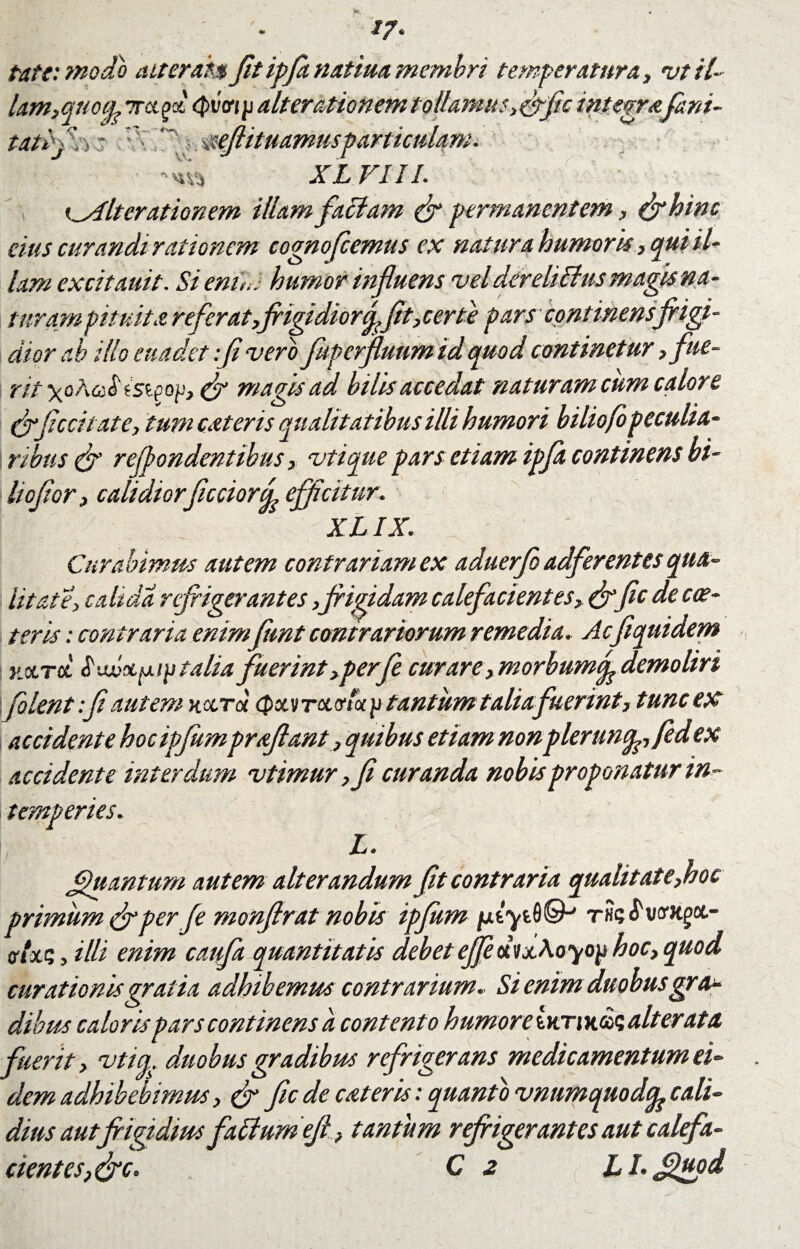 17.
tate: modò alterata sit ipsa natiua membri temperatura, vt il-
lam, quoq; παρὰ φύσιν alterationem tollamus, & sic integræ sani-
tati restituamus particulam.
XLVIII.
Alterationem illam factam & permanentem, & hinc
eius curandi rationem cognoscemus ex natura humoris, qui il-
lam excitauit. Si enim humor influens vel derelictus magis na-
turam pituitæ referat, frigidiorq; sit, certè pars continens frigi-
dior ab illo euadet: si verò superfluum id quod continetur, fue-
rit χολωδέστερον, & magis ad bilis accedat naturam cùm calore
& siccitate, tum cæteris qualitatibus illi humori bilioso peculia-
ribus & respondentibus, vtique pars etiam ipsa continens bi-
liosior, calidior sicciorq; efficitur.
XLIX.
Curabimus autem contrariam ex aduerso adferentes qua-
litatē, calidā refrigerantes, frigidam calefacientes, & sic de cœ-
teris: contraria enim sunt contrariorum remedia. Ac siquidem
κατὰ δύναμιν talia fuerint, per se curare, morbumq; demoliri
solent: si autem κατὰ φαντασίαν tantùm talia fuerint, tunc ex
accidente hoc ipsum præstant, quibus etiam non plerunq;, sed ex
accidente interdum vtimur, si curanda nobis proponatur in-
temperies.
L.
Quantum autem alterandum sit contraria qualitate, hoc
primùm & per se monstrat nobis ipsum μέγεθος τῆς δυσκρα-
σίας, illi enim causa quantitatis debet esse ἀνάλογον hoc, quod
curationis gratia adhibemus contrarium. Si enim duobus gra-
dibus caloris pars continens à contento humore ἑκτικῶς alterata
fuerit, vtiq; duobus gradibus refrigerans medicamentum ei-
dem adhibebimus, & sic de cæteris: quantò vnumquodq; cali-
dius aut frigidius factum est, tantùm refrigerantes aut calefa-
cientes, &c. C 2 LI. Quod